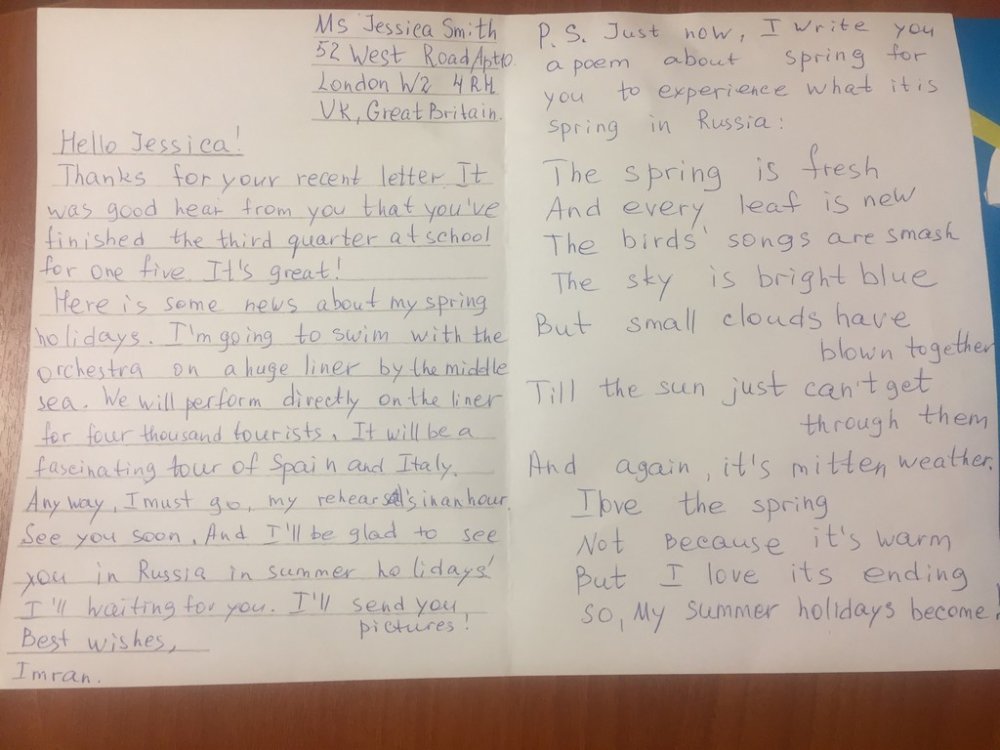 Ms Jessica Smith
52 West Road, Apt 10
London W2 4RH
UK, Great Britain.
Hello Jessica!
Thanks for your recent letter. It
was good hear from you that you've
finished the third quarter at school
for one five. It's great!
Here is some news about my spring
holidays. I'm going to swim with the
orchestra on a huge liner by the middle
sea. We will perform directly on the liner
for four thousand tourists. It will be a
fascinating tour of Spain and Italy.
Any way, I must go, my rehearsal's in an hour.
See you soon. And I'll be glad to see
you in Russia in summer holidays!
I'll waiting for you. I'll send you
pictures!
Best wishes,
Imran.
P.S. Just now, I write you
a poem about spring for
you to experience what it is
spring in Russia:
The spring is fresh
And every leaf is new
The birds' songs are smash
The sky is bright blue
But small clouds have
blown together
Till the sun just can't get
through them
And again, it's mitten weather.
I love the spring
Not because it's warm
But I love its ending
So, My summer holidays become.